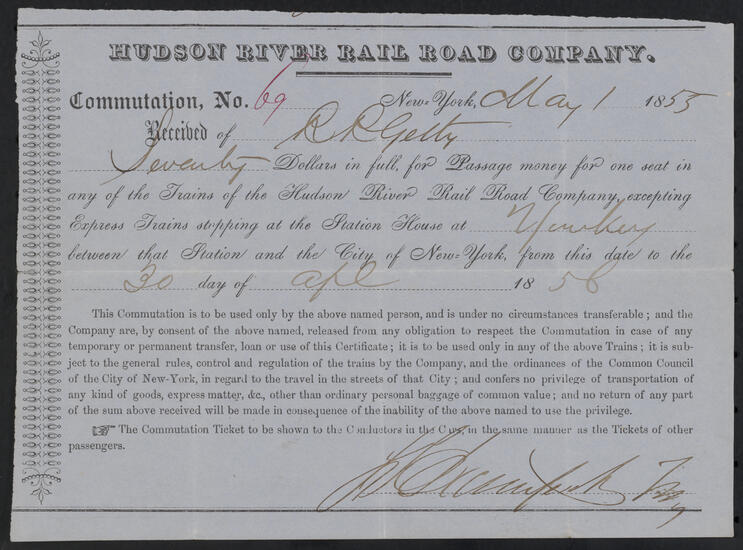 HUDSON RIVER RAIL ROAD COMPANY.
Commutation, No. 69 New=York, May 1 1855
Received of R R Getty
Seventy Dollars in full, for Passage money for one seat in
any of the Trains of the Hudson River Rail Road Company, excepting
Express Trains stopping at the Station House at Yonkers
between that Station and the City of New=York, from this date to the
30 day of Apl 1856
This Commutation is to be used only by the above named person, and is under no circumstances transferable; and the
Company are, by consent of the above named, released from any obligation to respect the Commutation in case of any
temporary or permanent transfer, loan or use of this Certificate; it is to be used only in any of the above Trains; it is sub-
ject to the general rules, control and regulation of the trains by the Company, and the ordinances of the Common Council
of the City of New-York, in regard to the travel in the streets of that City; and confers no privilege of transportation of
any kind of goods, express matter, &c., other than ordinary personal baggage of common value; and no return of any part
of the sum above received will be made in consequence of the inability of the above named to use the privilege.
☞ The Commutation Ticket to be shown to the Conductors in the Cars, in the same manner as the Tickets of other
passengers.